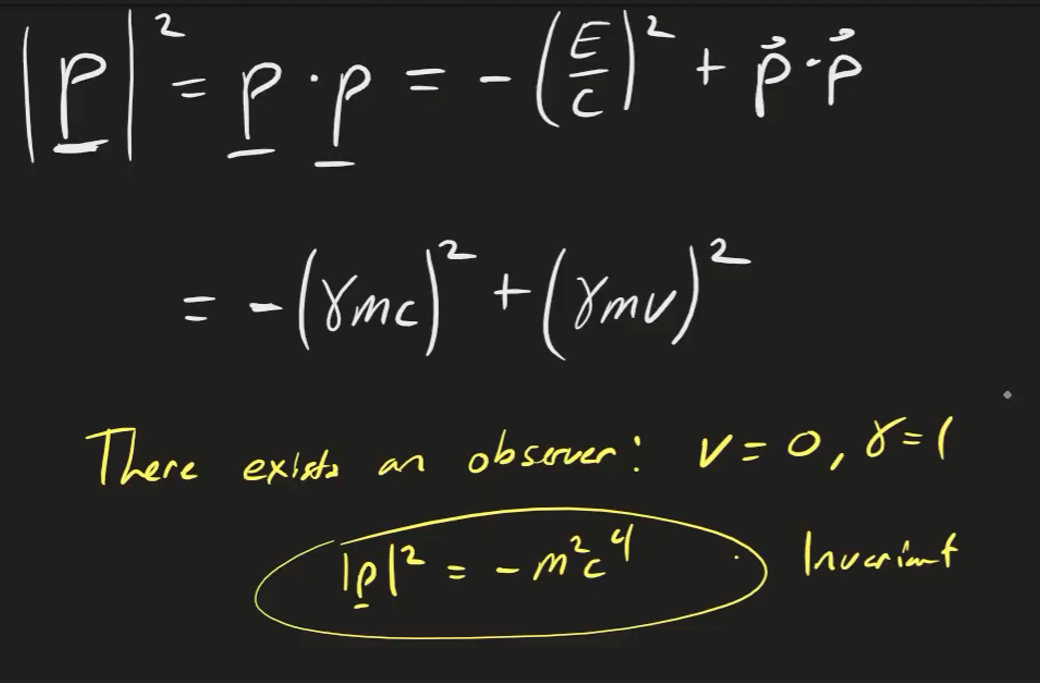 |p|² = p · p = -(E/c)² + p⃗ · p⃗
= -(γmc)² + (γmv)²
There exists an observer: v = 0, γ = 1
|p|² = -m²c⁴ Invariant